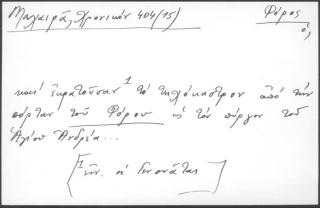 Μαχαιρά, Χρονικόν 404 (15) Φόρος
ὁ,
καὶ ἐκρατοῦσαν¹ τὸ τηλόκαστρον ἀπὸ τὴν
πόρταν τοῦ Φόρου ὡς τὸν πύργον τοῦ
Ἁγίου Ἀνδρέα...
[¹ ἐνν. οἱ Γενουάτες]